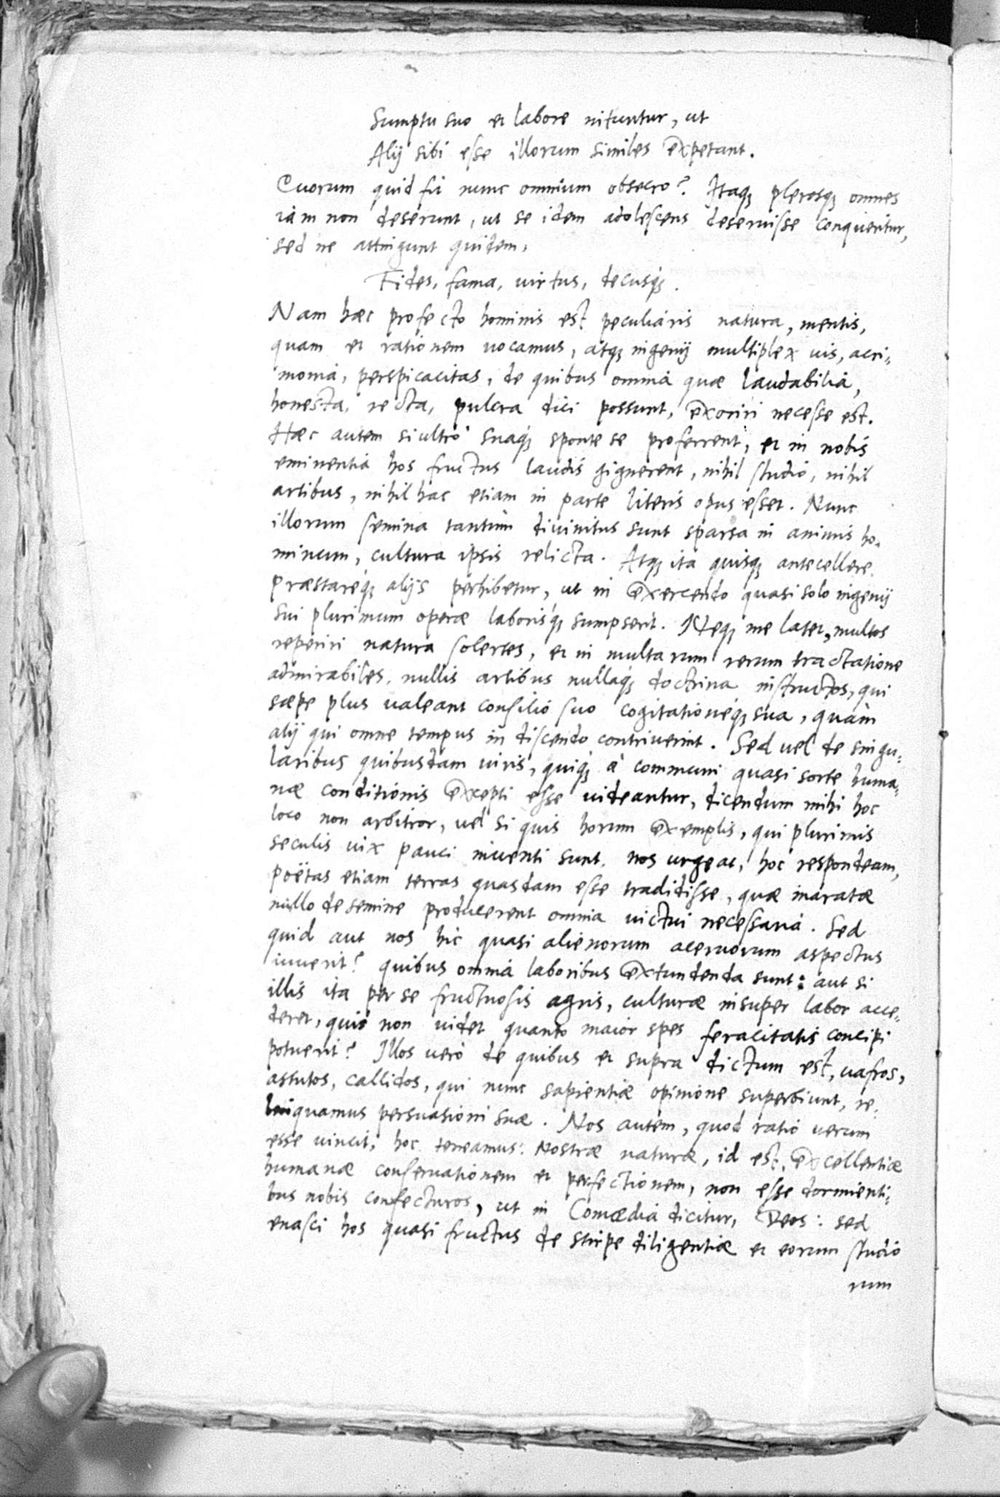 Sumptu suo et labore nituntur, ut
Alij sibi esse illorum similes expetant.
Quorum quid fit nunc omnium obsecro? Itaq; plerosq; omnes
iam non deserunt, ut se idem adolescens deseruisse conqueritur,
sed ne attingunt quidem,
Fides, fama, virtus, decusq;.
Nam haec profecto hominis est peculiaris natura, mentis,
quam et rationem uocamus, atq; ingenij multiplex uis, acri-
monia, perspicacitas, de quibus omnia quae laudabilia,
honesta, recta, pulcra dici possunt, exoriri necesse est.
Haec autem si ultro suaq; sponte se proferrent, et in nobis
eminentia hos fructus laudis gignerent, nihil studio, nihil
artibus, nihil hac etiam in parte literis opus esset. Nunc
illorum semina tantum diuinitus sunt sparsa in animis ho-
minum, cultura ipsis relicta. Atq; ita quisq; antecellere
praestareq; alijs perhibetur, ut in exercendo quasi solo ingenij
sui plurimum operae laborisq; sumpserit. Neq; me latet, multos
reperiri natura solertes, et in multarum rerum tractatione
admirabiles, nullis artibus nullaq; doctrina instructos, qui
saepe plus ualeant consilio suo cogitationeq; sua, quàm
alij qui omne tempus in discendo contriuerint. Sed uel de singu-
laribus quibusdam uiris, quiq; à communi quasi sorte huma-
nae conditionis excepti esse uideantur, dicendum mihi hoc
loco non arbitror, uel si quis horum exemplis, qui plurimis
seculis uix pauci inuenti sunt, nos urgeat, hoc respondeam,
poëtas etiam terras quasdam esse tradidisse, quae inaratae
nullo de semine producerent omnia uictui necessaria. Sed
quid aut nos hic quasi alienorum aceruorum aspectus
iuuerit? quibus omnia laboribus extundenda sunt: aut si
illis ita per se fructuosis agris, culturae insuper labor acce-
deret, quis non uidet quanto maior spes feracitatis concipi
potuerit? Illos uerò de quibus et supra dictum est, uafros,
astutos, callidos, qui nunc sapientiae opinione superbiunt, re-
linquamus persuasioni suae. Nos autem, quod ratio uerum
esse uincit, hoc teneamus: Nostrae naturae, id est, excellentiae
humanae conseruationem et perfectionem, non esse dormienti-
bus nobis confecturos, ut in Comoedia dicitur, Deos: sed
enasci hos quasi fructus de stirpe diligentiae et eorum studio
rum